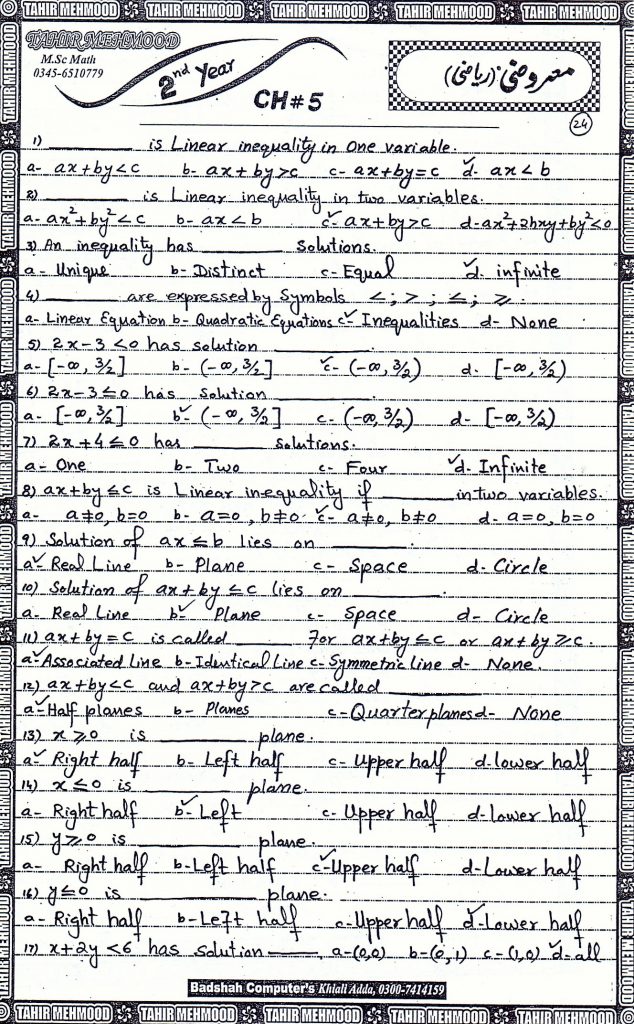 TAHIR MEHMOOD TAHIR MEHMOOD TAHIR MEHMOOD TAHIR MEHMOOD TAHIR MEHMOOD
TAHIR MEHMOOD
M.Sc Math
0345-6510779
2nd Year
CH#5
معروضی (ریاضی)
24
1) ________ is Linear inequality in One variable.
a- ax+by<c b- ax+by>c c- ax+by=c ✓d- ax<b
2) ________ is Linear inequality in two variables.
a- ax²+by²<c b- ax<b ✓c- ax+by>c d- ax²+2hxy+by²<0
3) An inequality has ________ solutions.
a- Unique b- Distinct c- Equal ✓d- infinite
4) ________ are expressed by Symbols <; >; ≤; ≥.
a- Linear Equation b- Quadratic Equations ✓c- Inequalities d- None
5) 2x-3<0 has solution ________.
a- [-∞, 3/2] b- (-∞, 3/2] ✓c- (-∞, 3/2) d- [-∞, 3/2)
6) 2x-3≤0 has solution ________.
a- [-∞, 3/2] ✓b- (-∞, 3/2] c- (-∞, 3/2) d- [-∞, 3/2)
7) 2x+4≤0 has ________ solutions.
a- One b- Two c- Four ✓d- Infinite
8) ax+by≤c is Linear inequality if ________ in two variables.
a- a≠0, b=0 b- a=0, b≠0 ✓c- a≠0, b≠0 d- a=0, b=0
9) Solution of ax≤b lies on ________.
✓a- Real Line b- Plane c- Space d- Circle
10) Solution of ax+by≤c lies on ________.
a- Real Line ✓b- Plane c- Space d- Circle
11) ax+by=c is called ________ For ax+by≤c or ax+by≥c.
✓a- Associated Line b- Identical Line c- Symmetric line d- None.
12) ax+by<c and ax+by>c are called ________
✓a- Half planes b- Planes c- Quarter planes d- None
13) x≥0 is ________ plane.
✓a- Right half b- Left half c- Upper half d- lower half
14) x≤0 is ________ plane.
a- Right half ✓b- Left c- Upper half d- Lower half
15) y≥0 is ________ plane.
a- Right half b- Left half ✓c- Upper half d- Lower half
16) y≤0 is ________ plane.
a- Right half b- Left half c- Upper half ✓d- Lower half
17) x+2y<6 has solution ____. a-(0,0) b-(0,1) c-(1,0) ✓d- all
Badshah Computer's Khiali Adda, 0300-7414159
TAHIR MEHMOOD TAHIR MEHMOOD TAHIR MEHMOOD TAHIR MEHMOOD TAHIR MEHMOOD